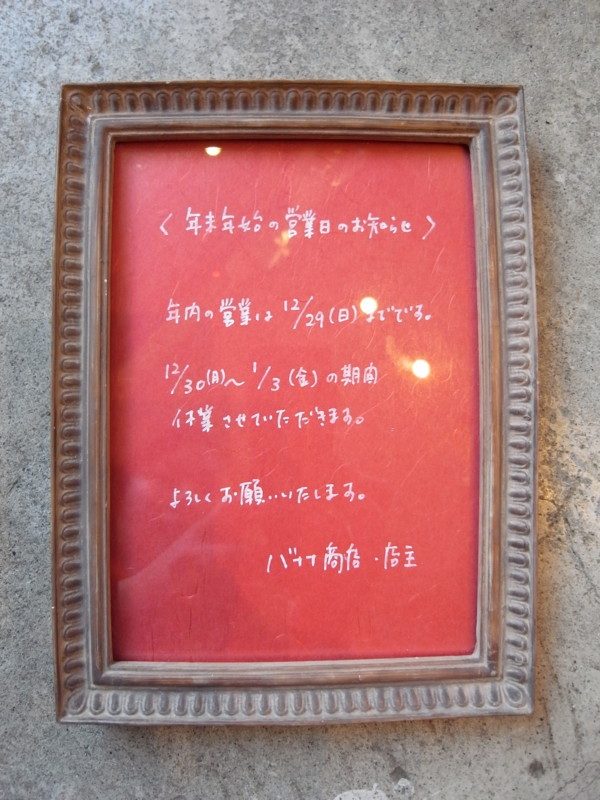 〈 年末年始の営業日のお知らせ 〉
年内の営業は 12/29(日)までです。
12/30(月)〜 1/3(金)の期間
休業させていただきます。
よろしくお願いいたします。
バナナ商店・店主